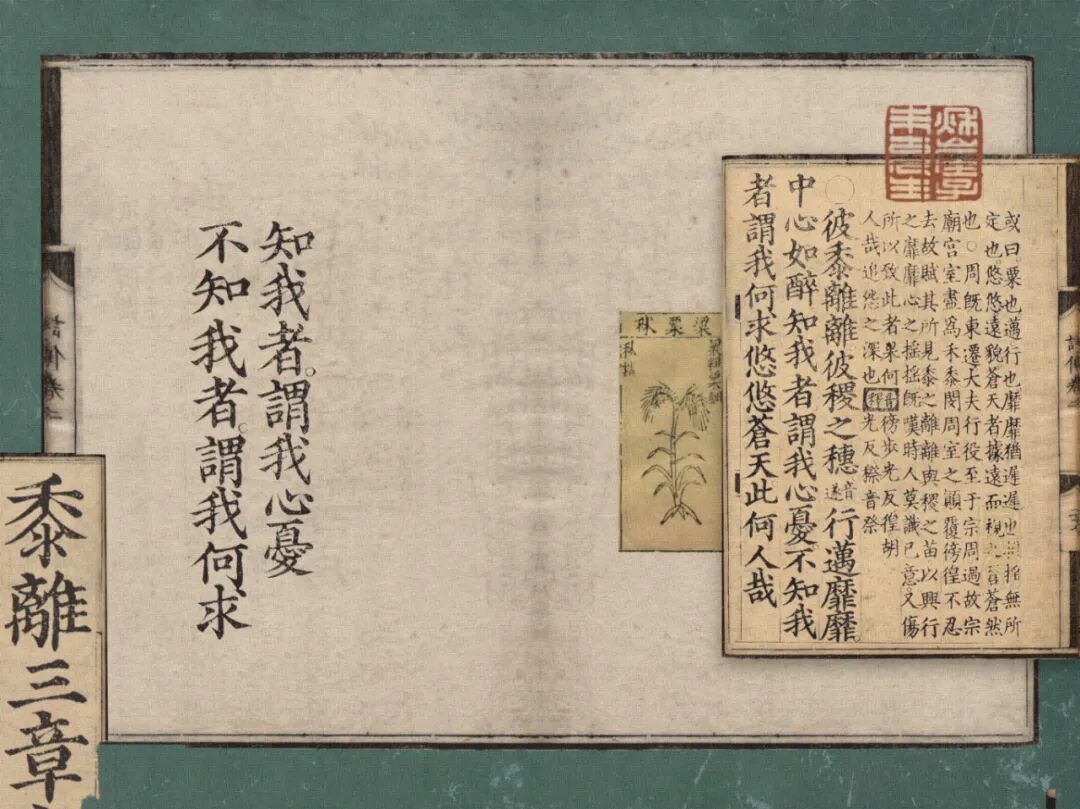 或曰粟也邁行也靡靡猶遲遲也搖搖無所
定也。悠悠遠貌蒼天者據遠而視之蒼蒼然
也○周既東遷大夫行役至于宗周過故宗
廟宮室盡爲禾黍閔周室之顛覆徬徨不忍
去故賦其所見黍之離離與稷之苗以興行
之靡靡心之搖搖既嘆時人莫識已意又傷
所以致此者果何音徬步光反徨胡
人哉追怨之深也釋光反穄音祭
○彼黍離離彼稷之穗音遂行邁靡靡。
中心如醉知我者謂我心憂不知我
者謂我何求悠悠蒼天此何人哉
粱粟秫
知我者。謂我心憂
不知我者。謂我何求
黍離三章